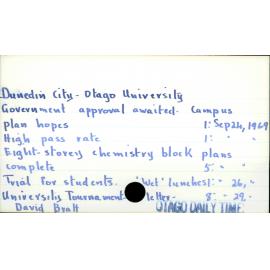 Dunedin City - Otago University
Government approval awaited - Campus
plan hopes 1: Sep 24, 1969
High pass rate 1: " "
Eight-storey chemistry block plans
complete 5: " "
Trial for students. 'Wet' lunches 1: " 26, "
University Tournament - letter - 8: " 29. -
David Bratt OTAGO DAILY TIME